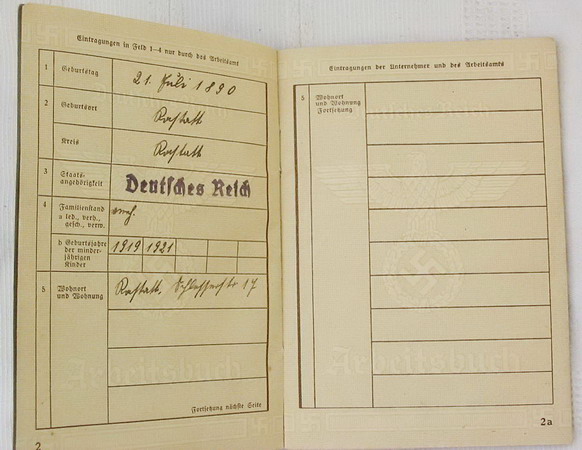 Eintragungen in Feld 1–4 nur durch das Arbeitsamt
1 Geburtstag 21. Juli 1890
2 Geburtsort Rastatt
Kreis Rastatt
3 Staats-
angehörigkeit Deutsches Reich
4 Familienstand
a led., verh.,
gesch., verw. verh.
b Geburtsjahre
der minder-
jährigen
Kinder 1919 1921
5 Wohnort
und Wohnung Rastatt, 17
Fortsetzung nächste Seite
Arbeitsbuch
2
Eintragungen der Unternehmer und des Arbeitsamts
5 Wohnort
und Wohnung
Fortsetzung
Arbeitsbuch
2a